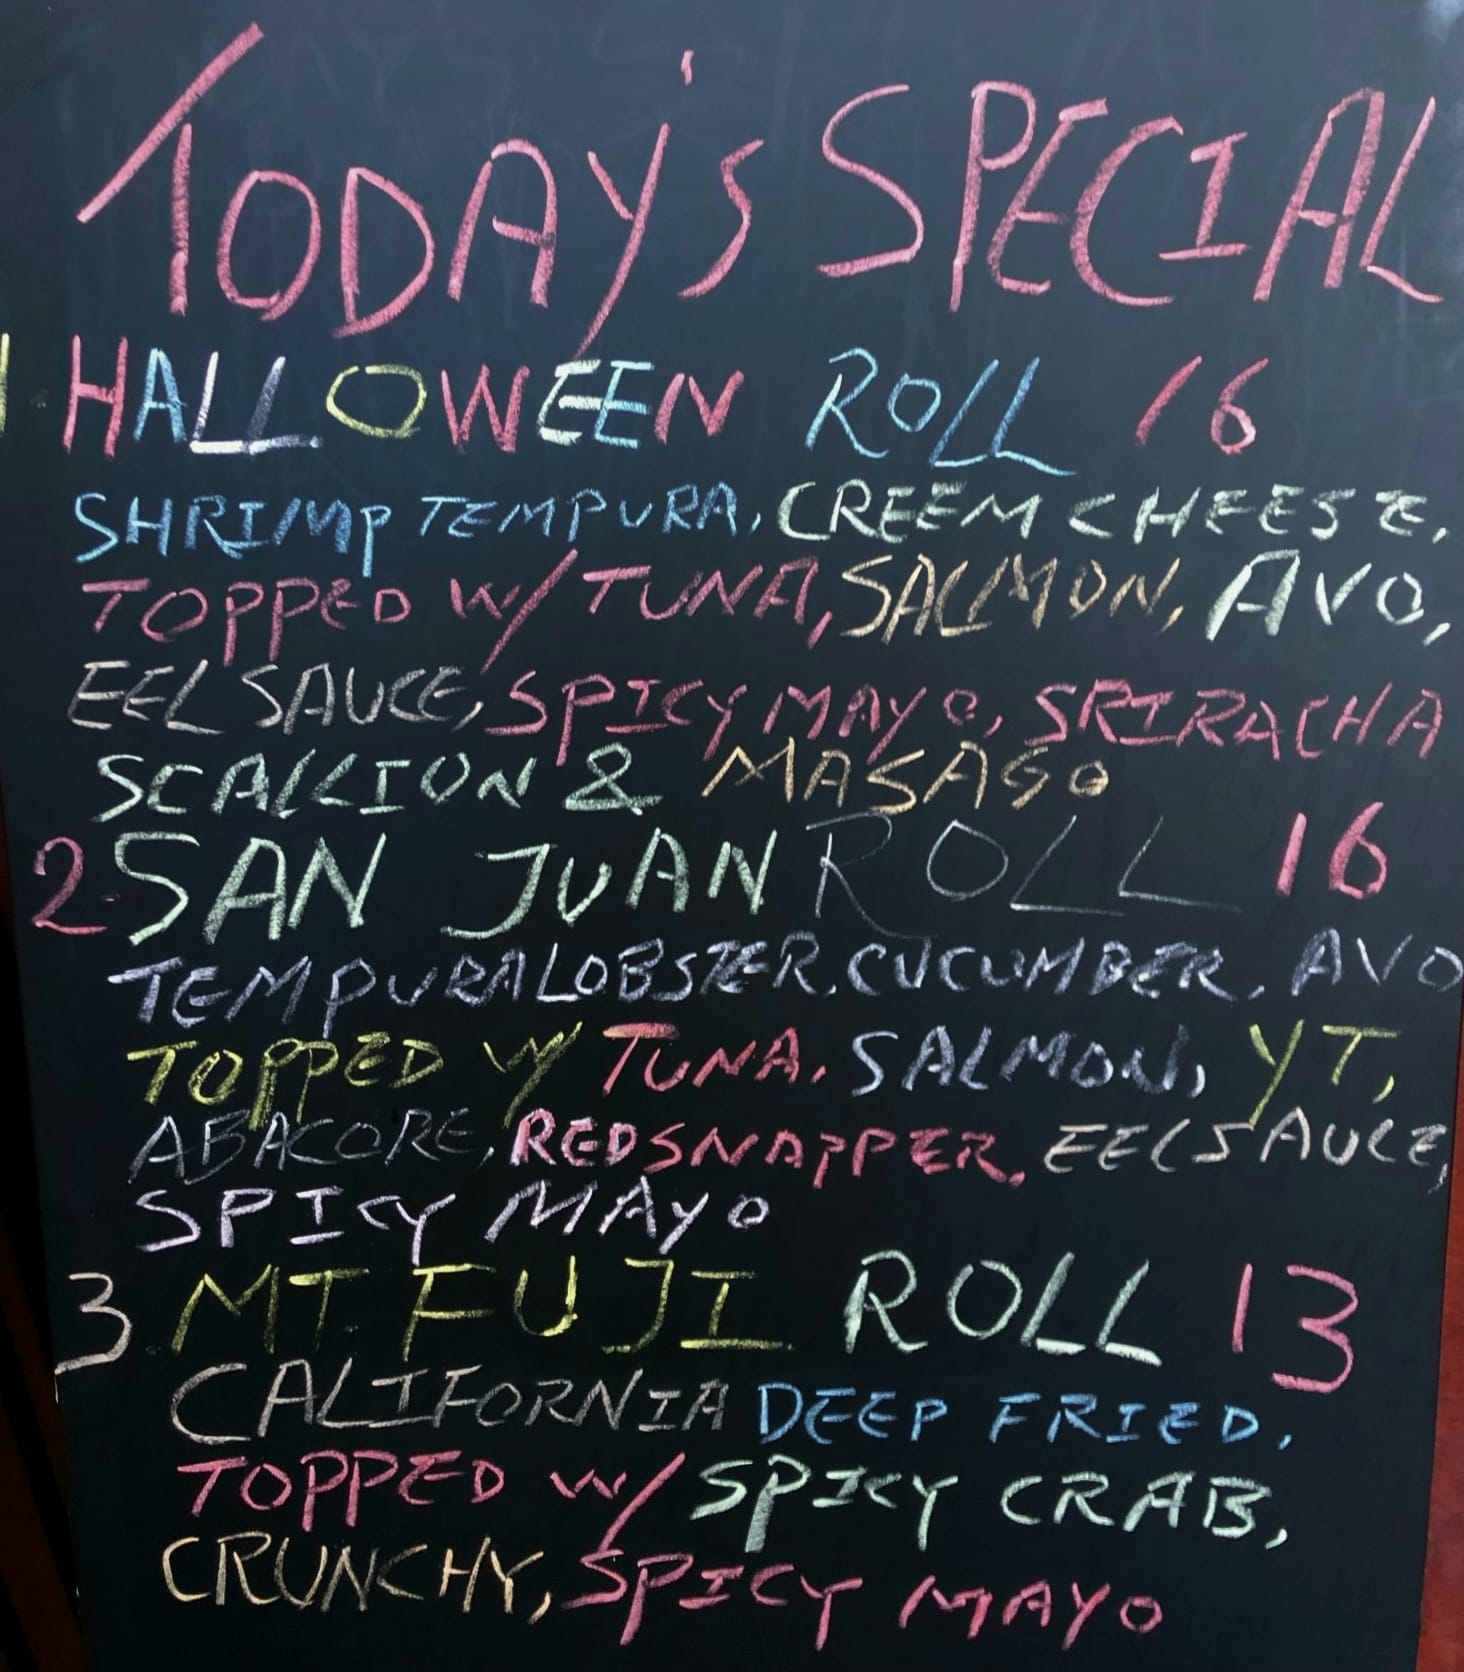 TODAY's SPECIAL
1 HALLOWEEN ROLL 16
SHRIMP TEMPURA, CREEM CHEESE,
TOPPED W/ TUNA, SALMON, AVO,
EEL SAUCE, SPICY MAYO, SRIRACHA
SCALLION & MASAGO
2-SAN JUAN ROLL 16
TEMPURA LOBSTER, CUCUMBER, AVO
TOPPED W/ TUNA, SALMON, YT,
ABACORE, RED SNAPPER, EEL SAUCE,
SPICY MAYO
3 MT. FUJI ROLL 13
CALIFORNIA DEEP FRIED,
TOPPED W/ SPICY CRAB,
CRUNCHY, SPICY MAYO